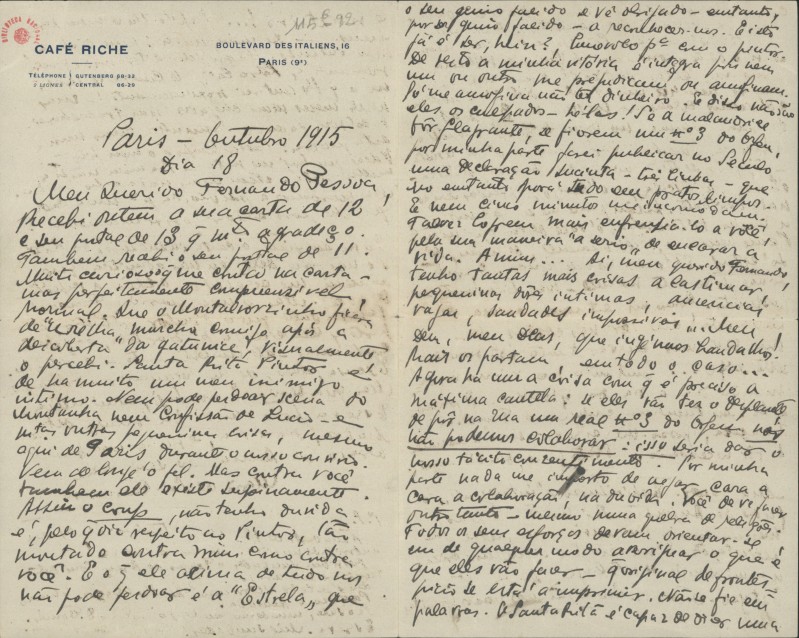 115⁶-92
CAFÉ RICHE
TÉLÉPHONE GUTENBERG 69-32
2 LIGNES CENTRAL 06-29
BOULEVARD DES ITALIENS, 16
PARIS (9ᵉ)
Paris – Outubro 1915
Dia 18
Meu Querido Fernando Pessoa!
Recebi ontem a sua carta de 12
e seu postal de 13 q mᵗᵒ agradeço.
Tambem recebi o seu postal de 11.
Muito curioso o q me conta na carta –
mas perfeitamente compreensivel
normal. Que o Montalvorzinho
de marcha comigo após a
descoberta" da gatunice, visualmente
o percebi. Santa Rita Pintor é
de ha muito um meu inimigo
intimo. Nem pode perdoar scena do
Montanha nem Confissão de Lucio – e
mᵗᵃˢ outras pequeninas coisas, mesmo
aqui de Paris durante o nosso convivio.
Vem de longe o fel. Mas contra você
tambem ele existe supinamente.
Assim o coup, não tenho duvida
é, pelo q diz respeito ao Pintor, tão
montado contra mim como contra
você. E o q ele acima de tudo nos
não pode perdoar é a "Estrela", que
o seu genio falido se vê obrigado – emtanto,
por ser genio falido – a reconhecer-nos. E isto
já é ser, hein?, pᵃ em o pintor.
De resto a minha vitória é integra pois nem
um ou outro me prejudicam ou
me não ter dinheiro. E disso não são
eles os culpados – hélas! Se a malandrice
fôr flagrante, se fizerem um nº 3 do Orfeu,
por minha parte farei publicar no Seculo
uma declaração sucinta – três linhas – que
no emtanto porá tudo em pratos limpos.
E nem cinco minutos me incomodam.
Talvez lograrem mais a você!
pela sua maneira "a sério" de encarar a
vida. A mim... Ai, meu querido Fernando,
tenho tantas mais coisas a lastimar!
pequeninas dôres intimas, ausencias
vagas, saudades impossiveis... Meu
Deus, meu Deus, que
mais os partam em todo o caso...
Agora ha uma coisa com q é preciso a
máxima cautela: se eles tão ter o
de pôr na rua um real nº 3 do Orfeu nós
não podemos colaborar: isso seria dar o
nosso tácito consentimento. Por minha
parte nada me importo de negar, cara a
cara a colaboração, na duvida. Você deve fazer
outro tanto – mesmo numa quebra de relações.
Todos os seus esforços devem orientar-se
em de qualquer modo averiguar o que é
que eles vão fazer – q original de frontes-
picio se está a imprimir. Não se fie em
palavras. O Santa Rita é capaz de dizer uma